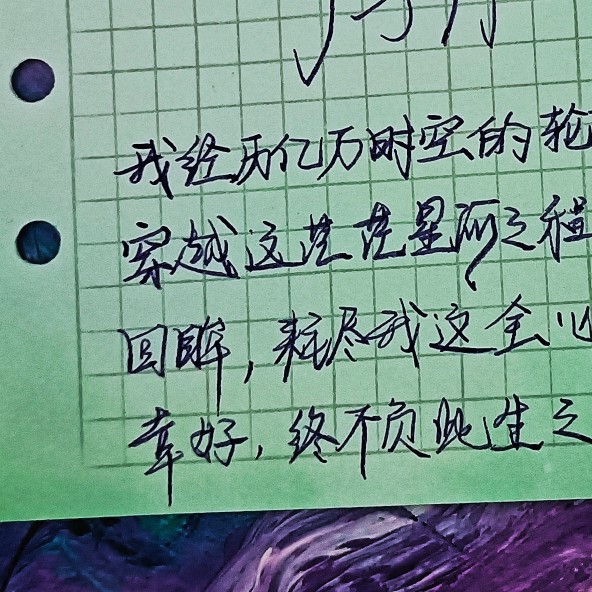 我经历亿万时空的轮
穿越这茫茫星河之
回眸，耗尽我这全心
幸好，终不负此生之